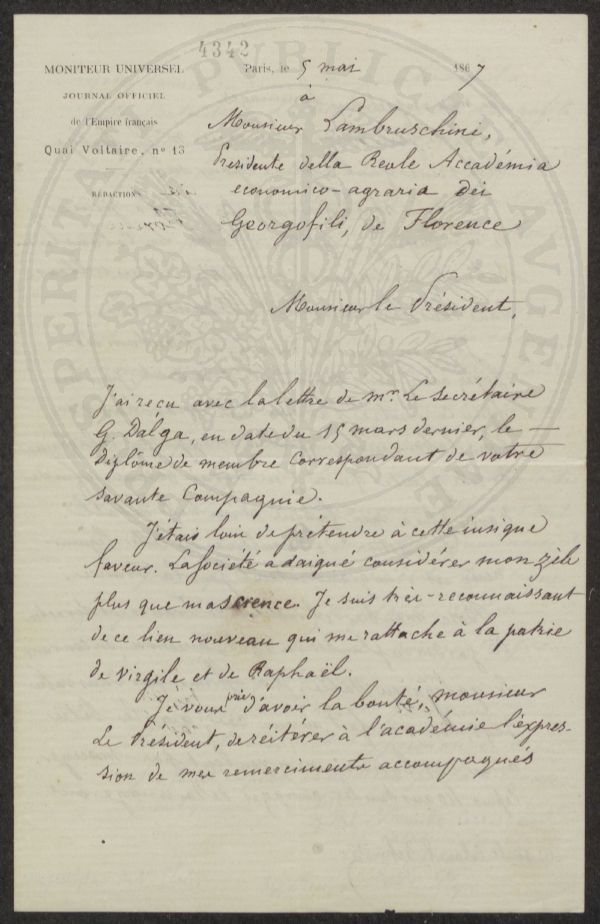 4342
MONITEUR UNIVERSEL
JOURNAL OFFICIEL
de l'Empire français
Quai Voltaire, nº 13
RÉDACTION
Paris, le 5 mai 1867
à
Monsieur Lambruschini,
Presidente della Reale Accadémia
economico-agraria dei
Georgofili, de Florence
Monsieur le Président,
J'ai reçu avec la lettre de mr. Le Secrétaire
G. Dalga, en date du 15 mars dernier, le —
Diplôme de membre Correspondant de votre
savante Compagnie.
J'étais loin de prétendre à cette insigne
faveur. La Société a daigné considérer mon zèle
plus que ma science. Je suis très-reconnaissant
de ce lien nouveau qui me rattache à la patrie
de Virgile et de Raphaël.
Je vous prie d'avoir la bonté, monsieur
Le Président, de réitérer à l'académie l'expres-
sion de mes remerciments accompagnés
PUBLICA
AVGE
PROSPERITA